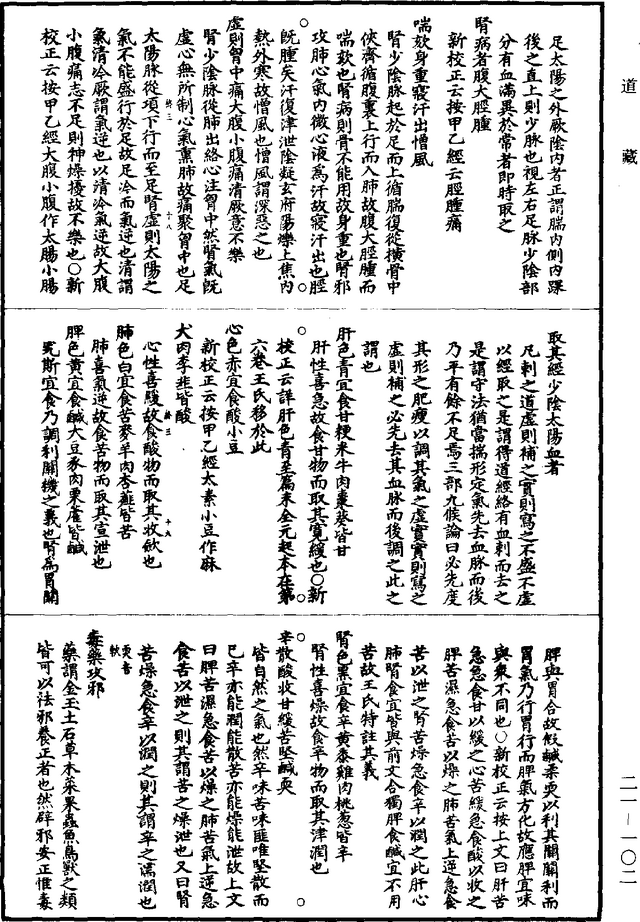 道藏
足太陽之外厥陰內者正謂腨內側內踝
後之直上則少脉也視左右足脉少陰部
分有血滿異於常者即時取之
腎病者腹大脛腫
新校正云按甲乙經云脛腫痛
喘欬身重寢汗出憎風
腎少陰脉起於足而上循腨復從橫骨中
俠齊循腹裏上行而入肺故腹大脛腫而
喘欬也腎病則骨不能用故身重也腎邪
攻肺心氣內微心液為汗故寢汗出也脛
既腫矣汗復津泄陰凝玄府陽爍上焦內
熱外寒故憎風也憎風謂深惡之也
虛則胷中痛大腹小腹痛清厥意不樂
腎少陰脉從肺出絡心注胷中然腎氣既
虛心無所制心氣熏肺故痛聚胷中也足
太陽脉從項下行而至足腎虛則太陽之
氣不能盛行於足故足冷而氣逆也清謂
氣清冷厥謂氣逆也以清冷氣逆故大腹
小腹痛志不足則神燥擾故不樂也○新
校正云按甲乙經大腹小腹作太腸小腸
取其經少陰太陽血者
凡刺之道虛則補之實則寫之不盛不虛
以經取之是謂得道經絡有血刺而去之
是謂守法猶當揣形定氣先去血脉而後
乃平有餘不足焉三部九候論曰必先度
其形之肥瘦以調其氣之虛實實則寫之
虛則補之必先去其血脉而後調之此之
謂也
肝色青宜食甘粳米牛肉棗葵皆甘
肝性喜急故食甘物而取其寬緩也○新
校正云詳肝色青至篇末全元起本在第
六卷王氏移於此
心色赤宜食酸小豆
新校正云按甲乙經太素小豆作麻
犬肉李韭皆酸
心性喜緩故食酸物而取其收歛也
肺色白宜食苦麥羊肉杏薤皆苦
肺喜氣逆故食苦物而取其宣泄也
脾色黃宜食鹹大豆豕肉栗藿皆鹹
究斯宜食乃調利關機之義也腎為胃關
脾與胃合故假鹹柔耎以利其關關利而
胃氣乃行胃行而脾氣方化故應脾宜味
與衆不同也○新校正云按上文曰肝苦
急急食甘以緩之心苦緩急食酸以收之
脾苦濕急食苦以燥之肺苦氣上逆急食
苦以泄之腎苦燥急食辛以潤之此肝心
肺腎食宜皆與前文合獨脾食鹹宜不用
苦故王氏特註其義
腎色黑宜食辛黃黍雞肉桃葱皆辛
腎性喜燥故食辛物而取其津潤也
辛散酸收甘緩苦堅鹹耎
皆自然之氣也然辛味苦味匪唯堅散而
已辛亦能潤能散苦亦能燥能泄故上文
曰脾苦濕急食苦以燥之肺苦氣上逆急
食苦以泄之則其謂苦之燥泄也又曰腎
苦燥急食辛以潤之則其謂辛之濡潤也
毒藥攻邪
藥謂金玉土石草木菜果蟲魚鳥獸之類
皆可以祛邪養正者也然辟邪安正惟毒
二一—一〇二